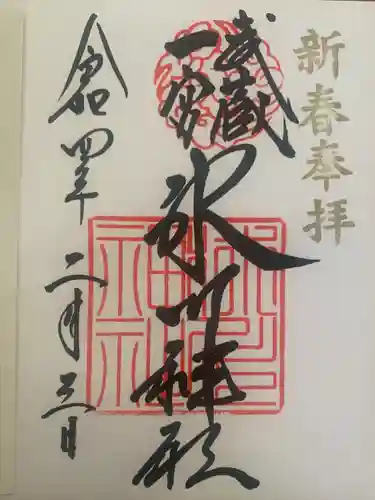 新春奉拝
武蔵
一宮
氷川神社
令和四年二月三日